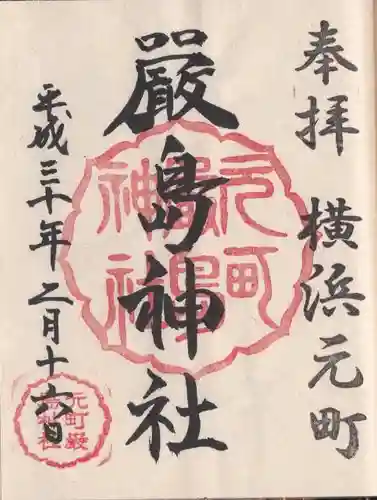 奉拝 横浜元町
嚴島神社
平成三十年二月十六日
元町
嚴島
神社
元町嚴
島神社